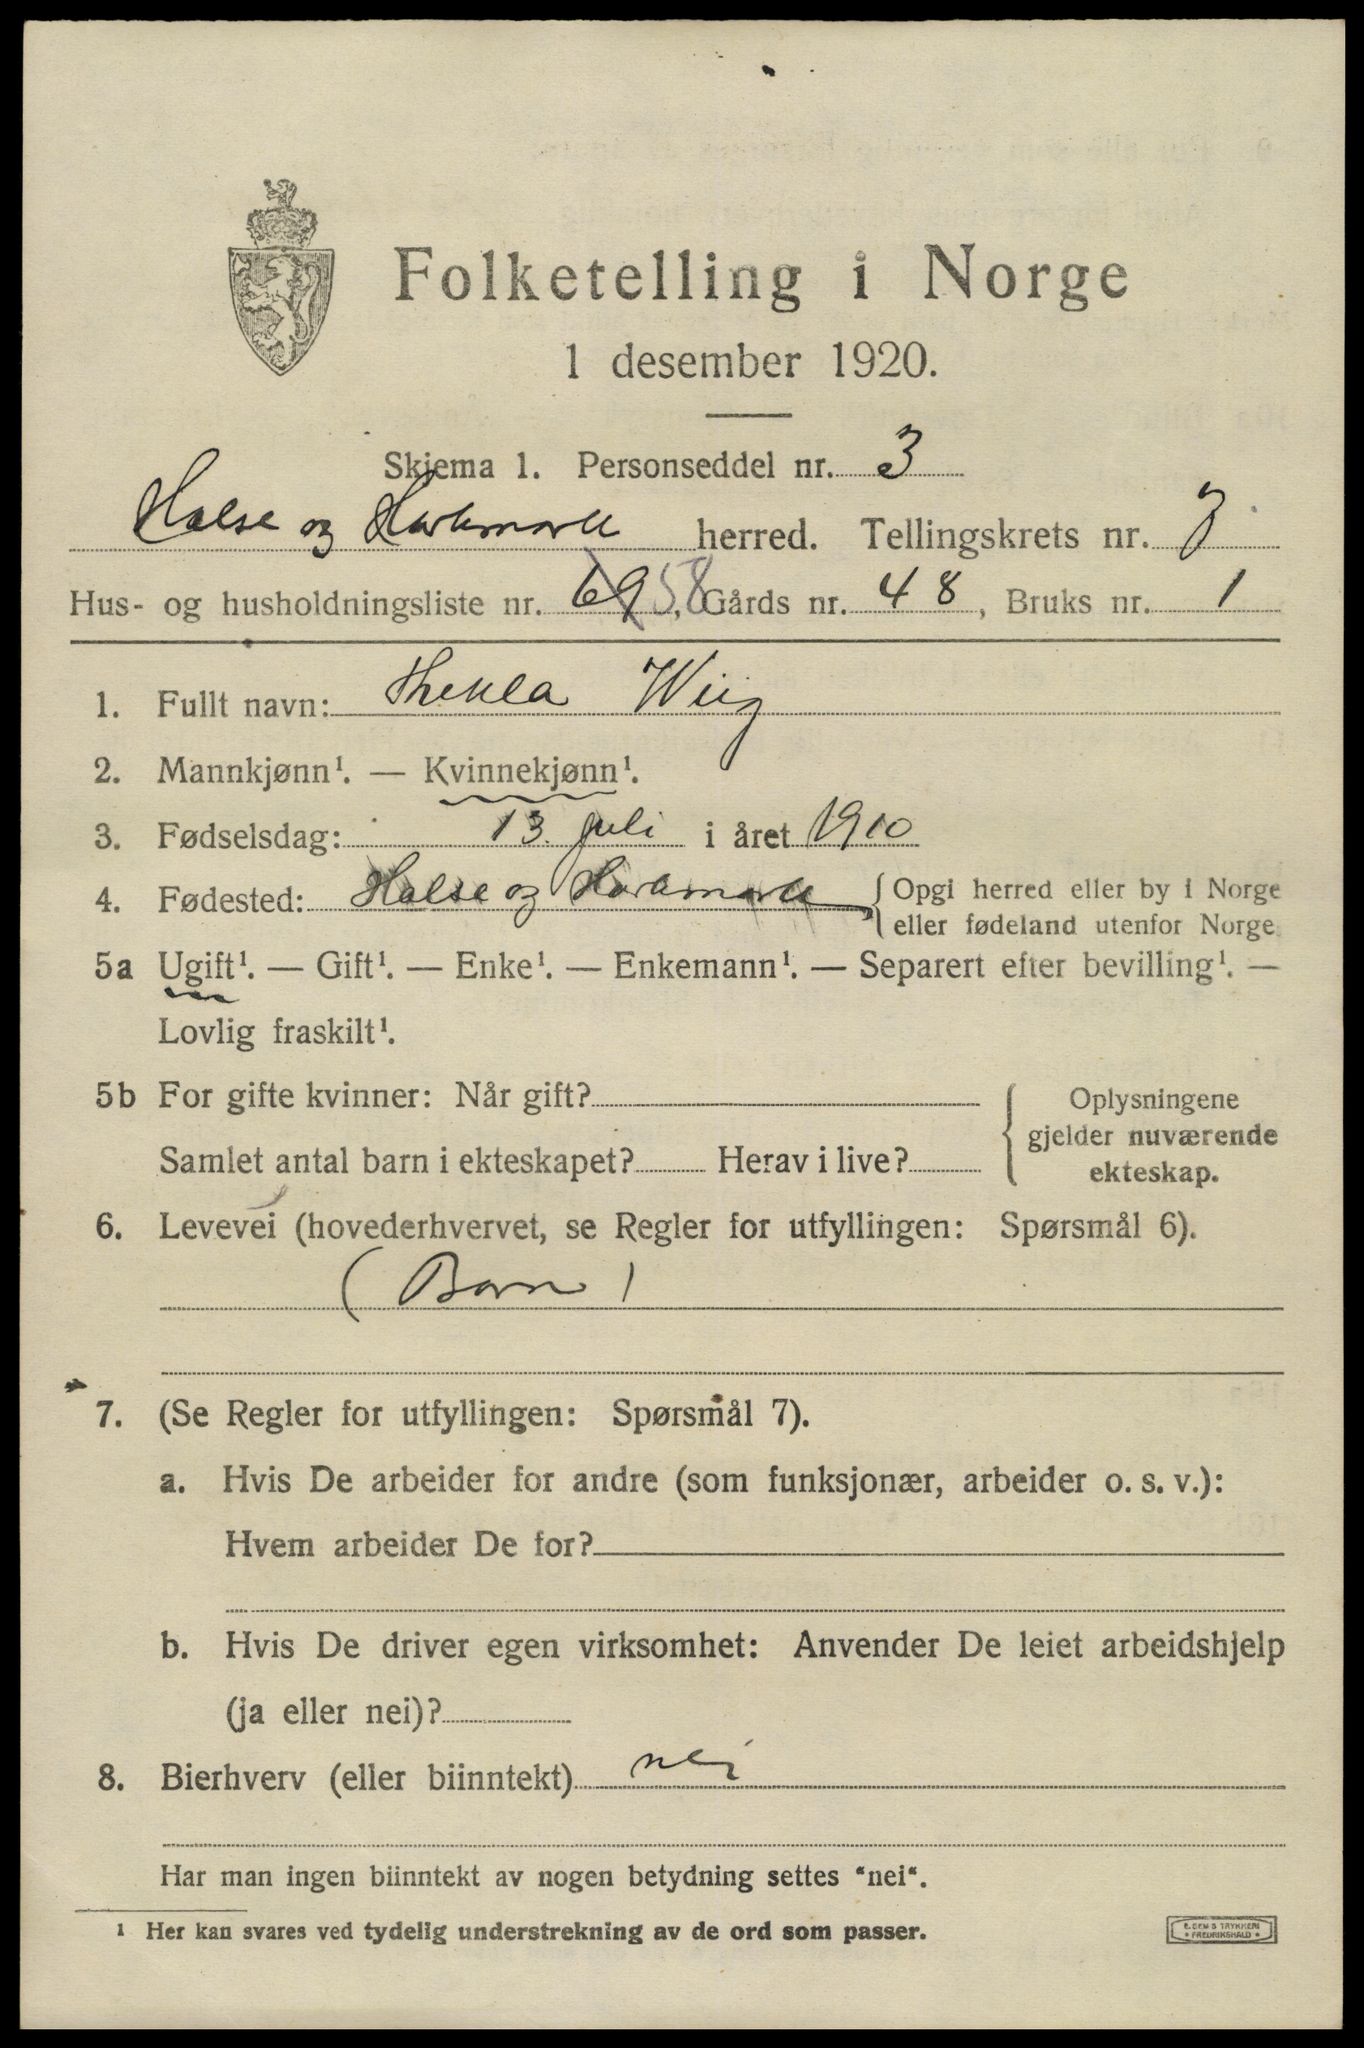 Folketelling i Norge
1 desember 1920.
Skjema 1. Personseddel nr. 3
Halse og Harkmark herred. Tellingskrets nr. 7
Hus- og husholdningsliste nr. 69 58, Gårds nr. 48, Bruks nr. 1
1. Fullt navn: Thekla Wiig
2. Mannkjønn¹. — Kvinnekjønn¹.
3. Fødselsdag: 13. juli i året 1910
4. Fødested: Halse og Harkmark {Opgi herred eller by i Norge
eller fødeland utenfor Norge.
5a Ugift¹. — Gift¹. — Enke¹. — Enkemann¹. — Separert efter bevilling¹. —
Lovlig fraskilt¹.
5b For gifte kvinner: Når gift?
Samlet antal barn i ekteskapet? Herav i live?
Oplysningene
gjelder nuværende
ekteskap.
6. Levevei (hovederhvervet, se Regler for utfyllingen: Spørsmål 6).
(Barn)
7. (Se Regler for utfyllingen: Spørsmål 7).
a. Hvis De arbeider for andre (som funksjonær, arbeider o. s. v.):
Hvem arbeider De for?
b. Hvis De driver egen virksomhet: Anvender De leiet arbeidshjelp
(ja eller nei)?
8. Bierhverv (eller biinntekt) nei
Har man ingen biinntekt av nogen betydning settes "nei".
¹ Her kan svares ved tydelig understrekning av de ord som passer.
E. SEM'S TRYKKERI
FREDRIKSHALD